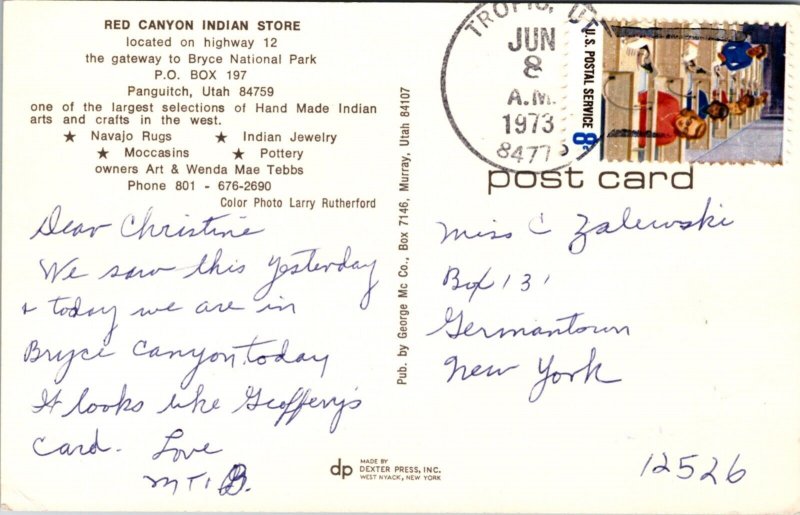 RED CANYON INDIAN STORE
located on highway 12
the gateway to Bryce National Park
P.O. BOX 197
Panguitch, Utah 84759
one of the largest selections of Hand Made Indian
arts and crafts in the west.
★ Navajo Rugs ★ Indian Jewelry
★ Moccasins ★ Pottery
owners Art & Wenda Mae Tebbs
Phone 801 - 676-2690
Color Photo Larry Rutherford
Dear Christine
We saw this yesterday
& today we are in
Bryce Canyon. today
It looks like Geoffery's
Card. Love
Pub. by George Mc Co., Box 7146, Murray, Utah 84107
dp MADE BY
DEXTER PRESS, INC.
WEST NYACK, NEW YORK
TROPIC, UT
JUN
8
A.M.
1973
84776
U.S. POSTAL SERVICE 8c
post card
Miss C Zalewski
Box 131
Germantown
New York
12526